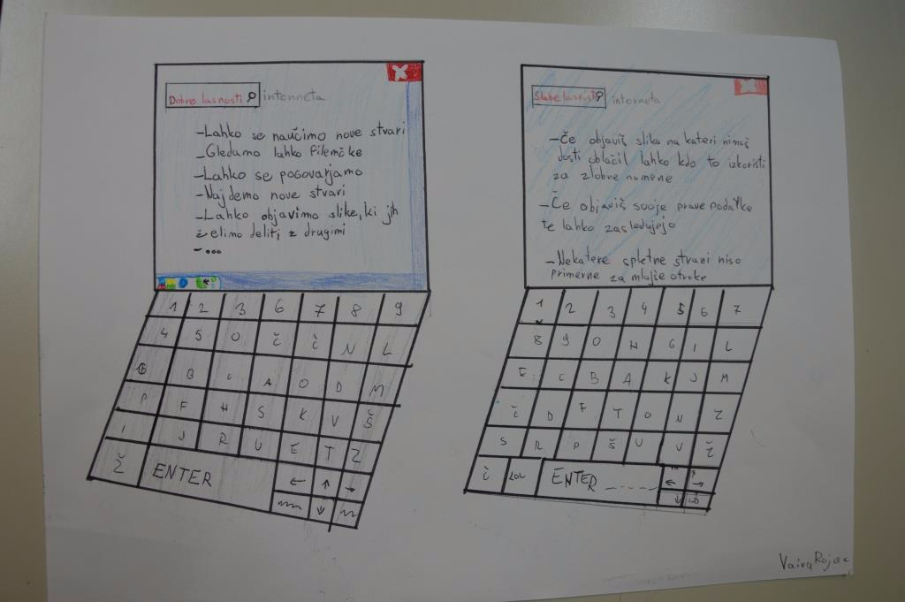 Dobre lasnosti interneta
-Lahko se naučimo nove stvari
-Gledamo lahko filmčke
-Lahko se pogovarjamo
-Najdemo nove stvari
-Lahko objavimo slike, ki jh
želimo deliti z drugimi
-...
1 2 3 6 7 8 9
4 5 0 č č N L
G B C A O D M
P F H S K V Š
I J R U E T Z
Ž ENTER ← ↑ →
↓
Slabe lasnosti interneta
-Če objaviš sliko na kateri nimaš
dosti oblačil lahko kdo to izkoristi
za zlobne namene
-Če objaviš svoje prave podatke
te lahko zasledujejo
-Nekatere spletne strani niso
primerne za mlajše otroke
1 2 3 4 5 6 7
8 9 0 H G I L
E C B A K J M
č D F T O N Z
S R P Š U V Ž
č ENTER ← ↑ →
↓